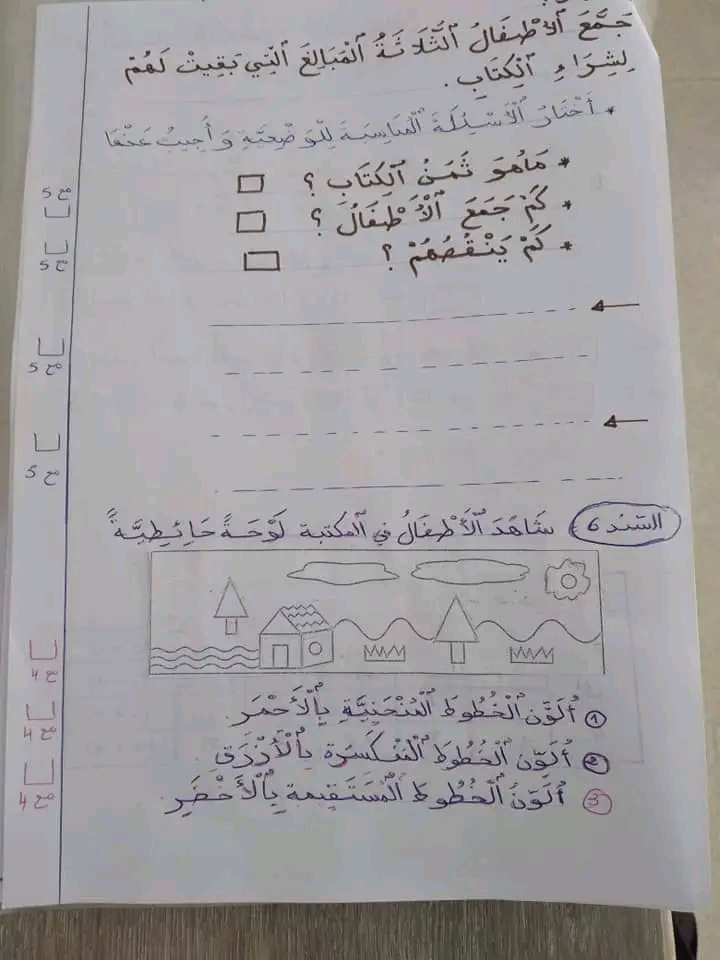 جَمَّعَ ٱلْأَطْفَالُ ٱلثَّلَاثَةُ ٱلْمَبَالِغَ ٱلَّتِي بَقِيَتْ لَهُمْ
لِشِرَاءِ ٱلْكِتَابِ.
* أَخْتَارُ ٱلْأَسْئِلَةَ ٱلْمُنَاسِبَةَ لِلْوَضْعِيَّةِ وَ أُجِيبُ عَنْهَا
* مَاهُوَ ثَمَنُ ٱلْكِتَابِ ؟
* كَمْ جَمَعَ ٱلْأَطْفَالُ ؟
* كَمْ يَنْقُصُهُمْ ؟
مع 5
مع 5
مع 5
مع 5
السّند 6: شَاهَدَ ٱلْأَطْفَالُ في المكتبة لَوْحَةً حَائِطِيَّةً
1 أُلَوِّن ٱلْخُطُوطَ ٱلْمُنْحَنِيَّةِ بِٱلْأَحْمَرِ.
2 أُلَوِّن ٱلْخُطُوطَ ٱلْمُنْكَسِرَة بِٱلْأَزْرَقِ.
3 أُلَوِّنُ ٱلْخُطُوطَ ٱلْمُسْتَقِيمة بِٱلْأَخْضَرِ.
مع 4
مع 4
مع 4